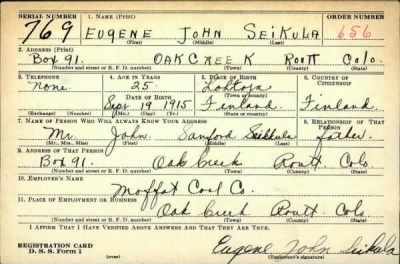 SERIAL NUMBER 1. NAME (Print) ORDER NUMBER
769 EUGENE JOHN SEIKULA 656
(First) (Middle) (Last)
2. ADDRESS (Print)
Box 91. OAK CREEK ROUTT Colo.
(Number and street or R. F. D. number) (Town) (County) (State)
3. TELEPHONE 4. AGE IN YEARS 5. PLACE OF BIRTH 6. COUNTRY OF CITIZENSHIP
None. 25. Lohtoja
DATE OF BIRTH (Town or county)
Sept 19 1915 Finland. Finland.
(Exchange) (Number) (Mo.) (Day) (Yr.) (State or country)
7. NAME OF PERSON WHO WILL ALWAYS KNOW YOUR ADDRESS 8. RELATIONSHIP OF THAT PERSON
Mr. John. Sanford Seikkula father.
(Mr., Mrs., Miss) (First) (Middle) (Last)
9. ADDRESS OF THAT PERSON
Box 91. Oak Creek Routt. Colo
(Number and street or R. F. D. number) (Town) (County) (State)
10. EMPLOYER'S NAME
Moffat Coal Co.
11. PLACE OF EMPLOYMENT OR BUSINESS
Oak Creek Routt. Colo.
(Number and street or R. F. D. number) (Town) (County) (State)
I AFFIRM THAT I HAVE VERIFIED ABOVE ANSWERS AND THAT THEY ARE TRUE.
REGISTRATION CARD
D. S. S. Form 1 Eugene John Seikula
(over) (Registrant's signature)